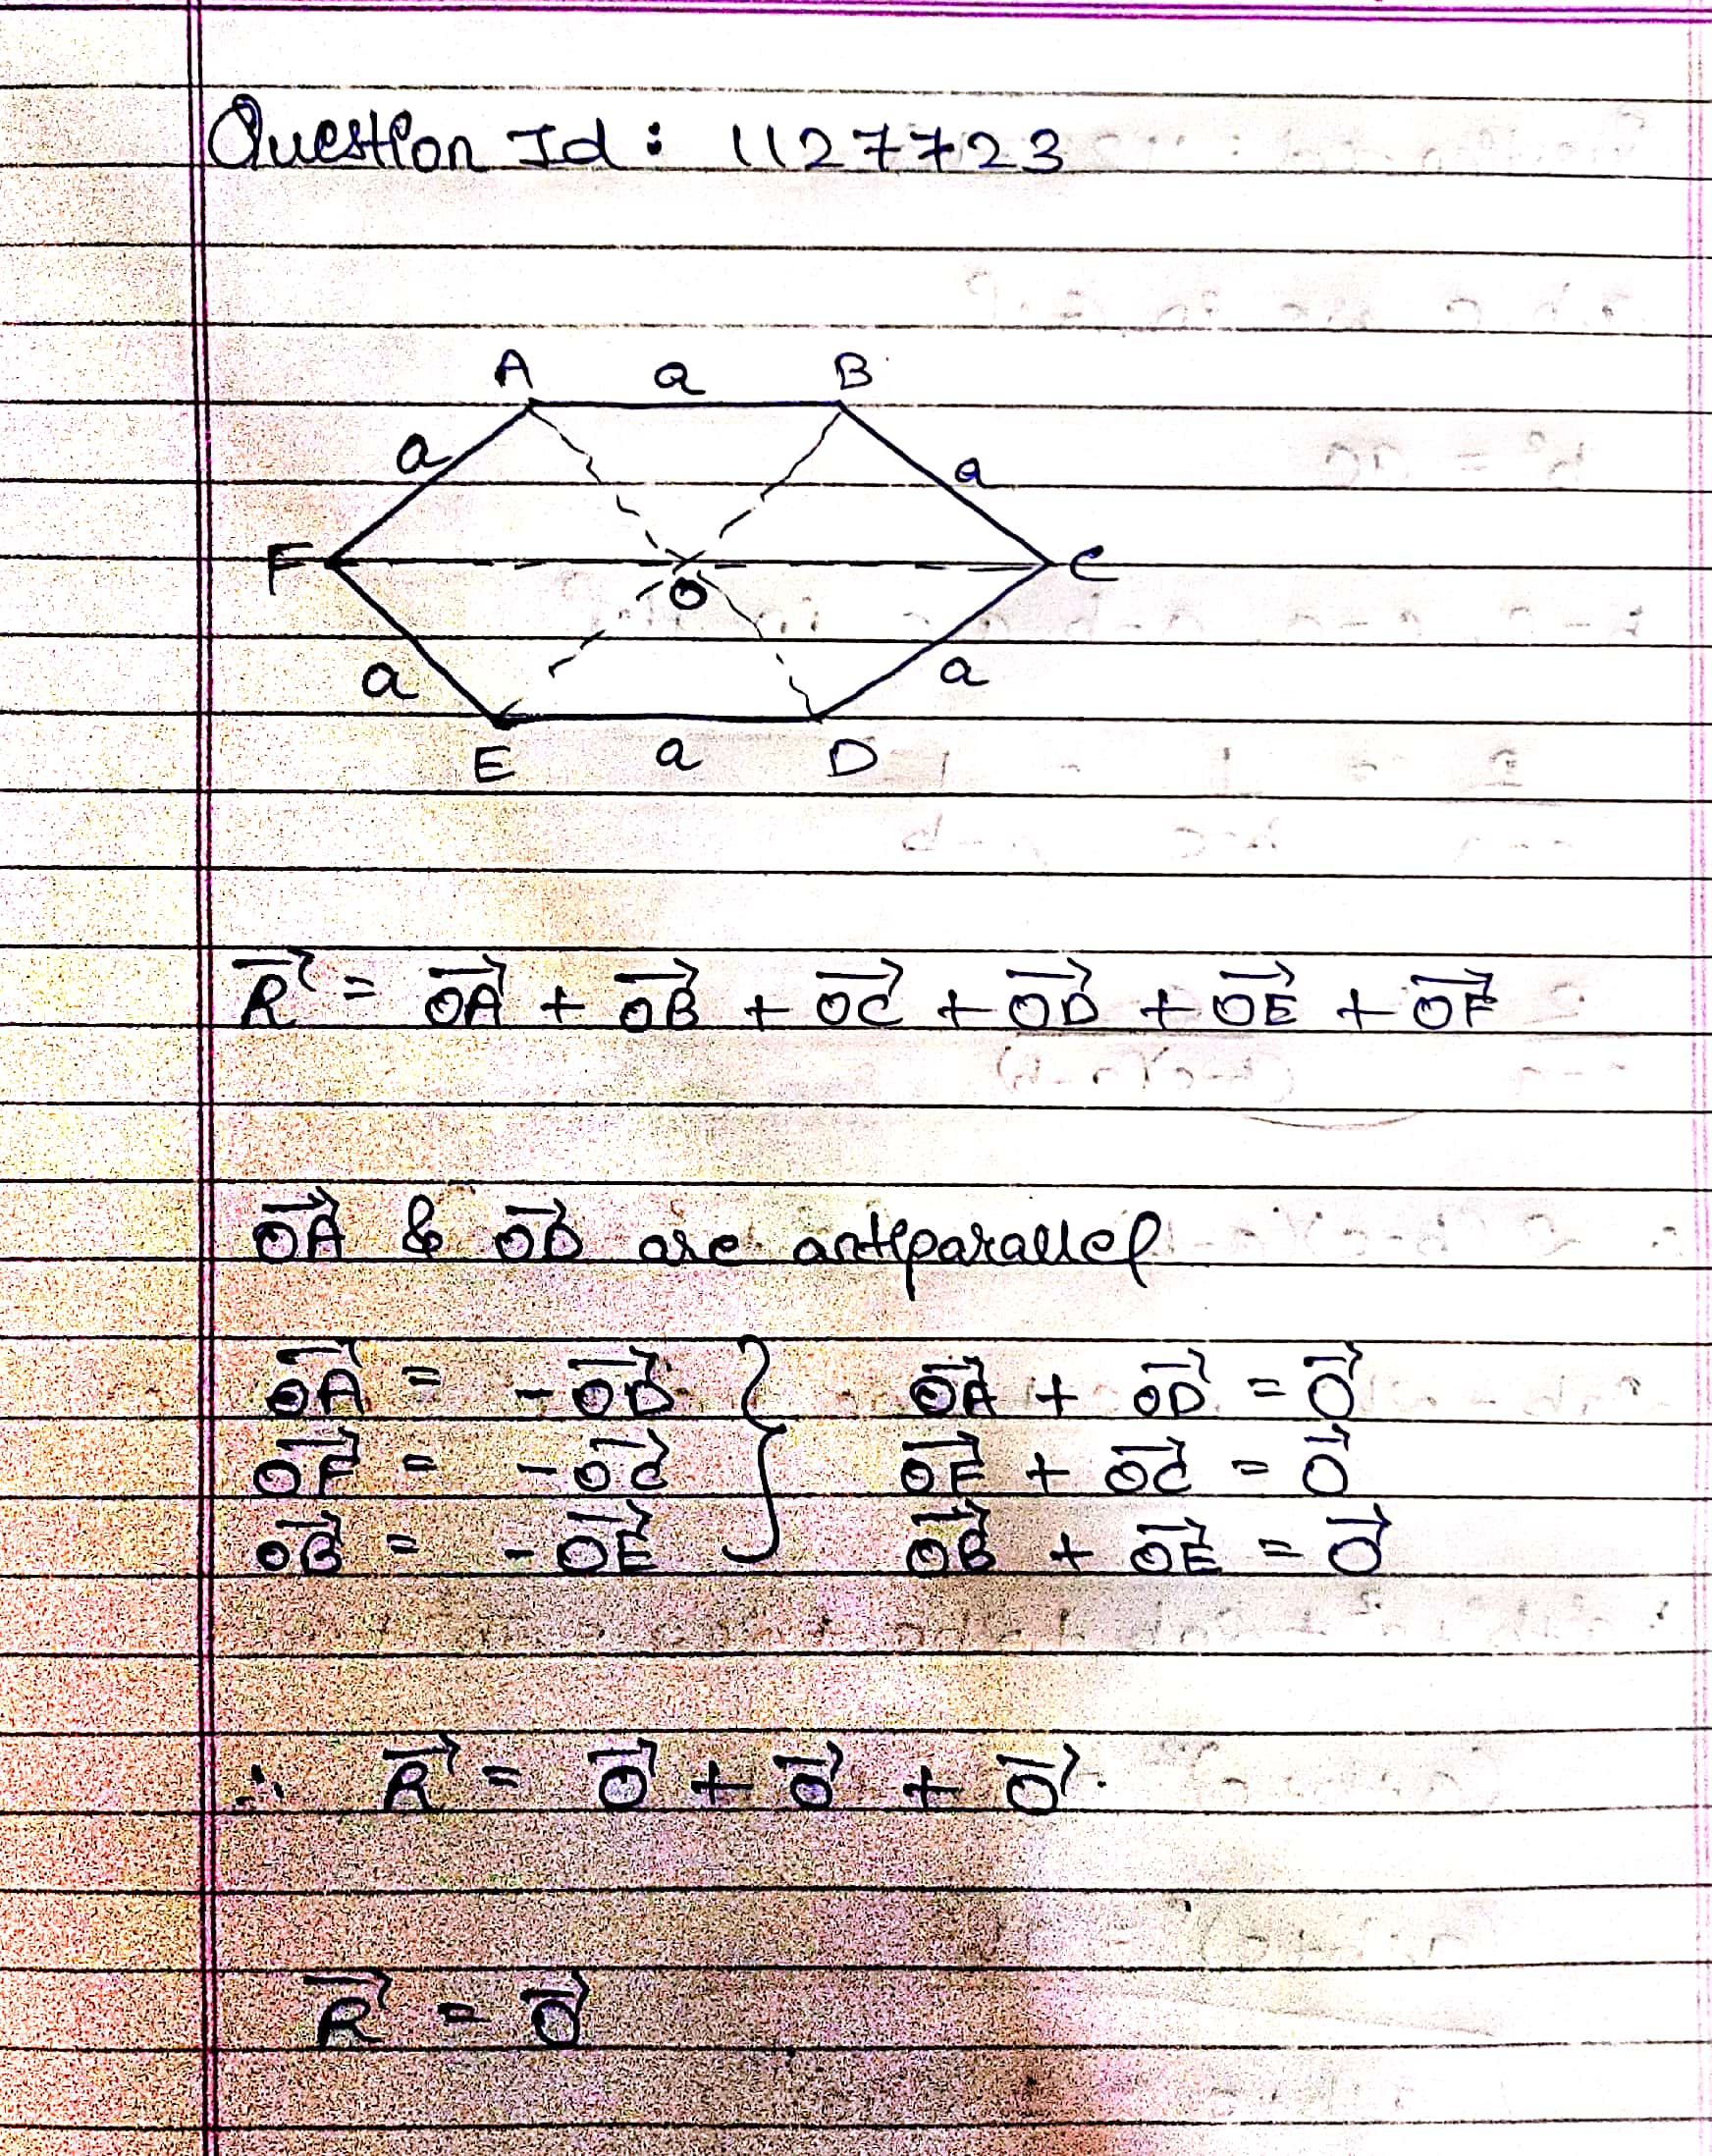 Question Id : 1127723
A a B
a a
F O C
a a
E a D
R⃗ = OA⃗ + OB⃗ + OC⃗ + OD⃗ + OE⃗ + OF⃗
OA⃗ & OD⃗ are antiparallel
OA⃗ = -OD⃗ } OA⃗ + OD⃗ = O⃗
OF⃗ = -OC⃗ OF⃗ + OC⃗ = O⃗
OB⃗ = -OE⃗ OB⃗ + OE⃗ = O⃗
∴ R⃗ = O⃗ + O⃗ + O⃗.
R⃗ = O⃗